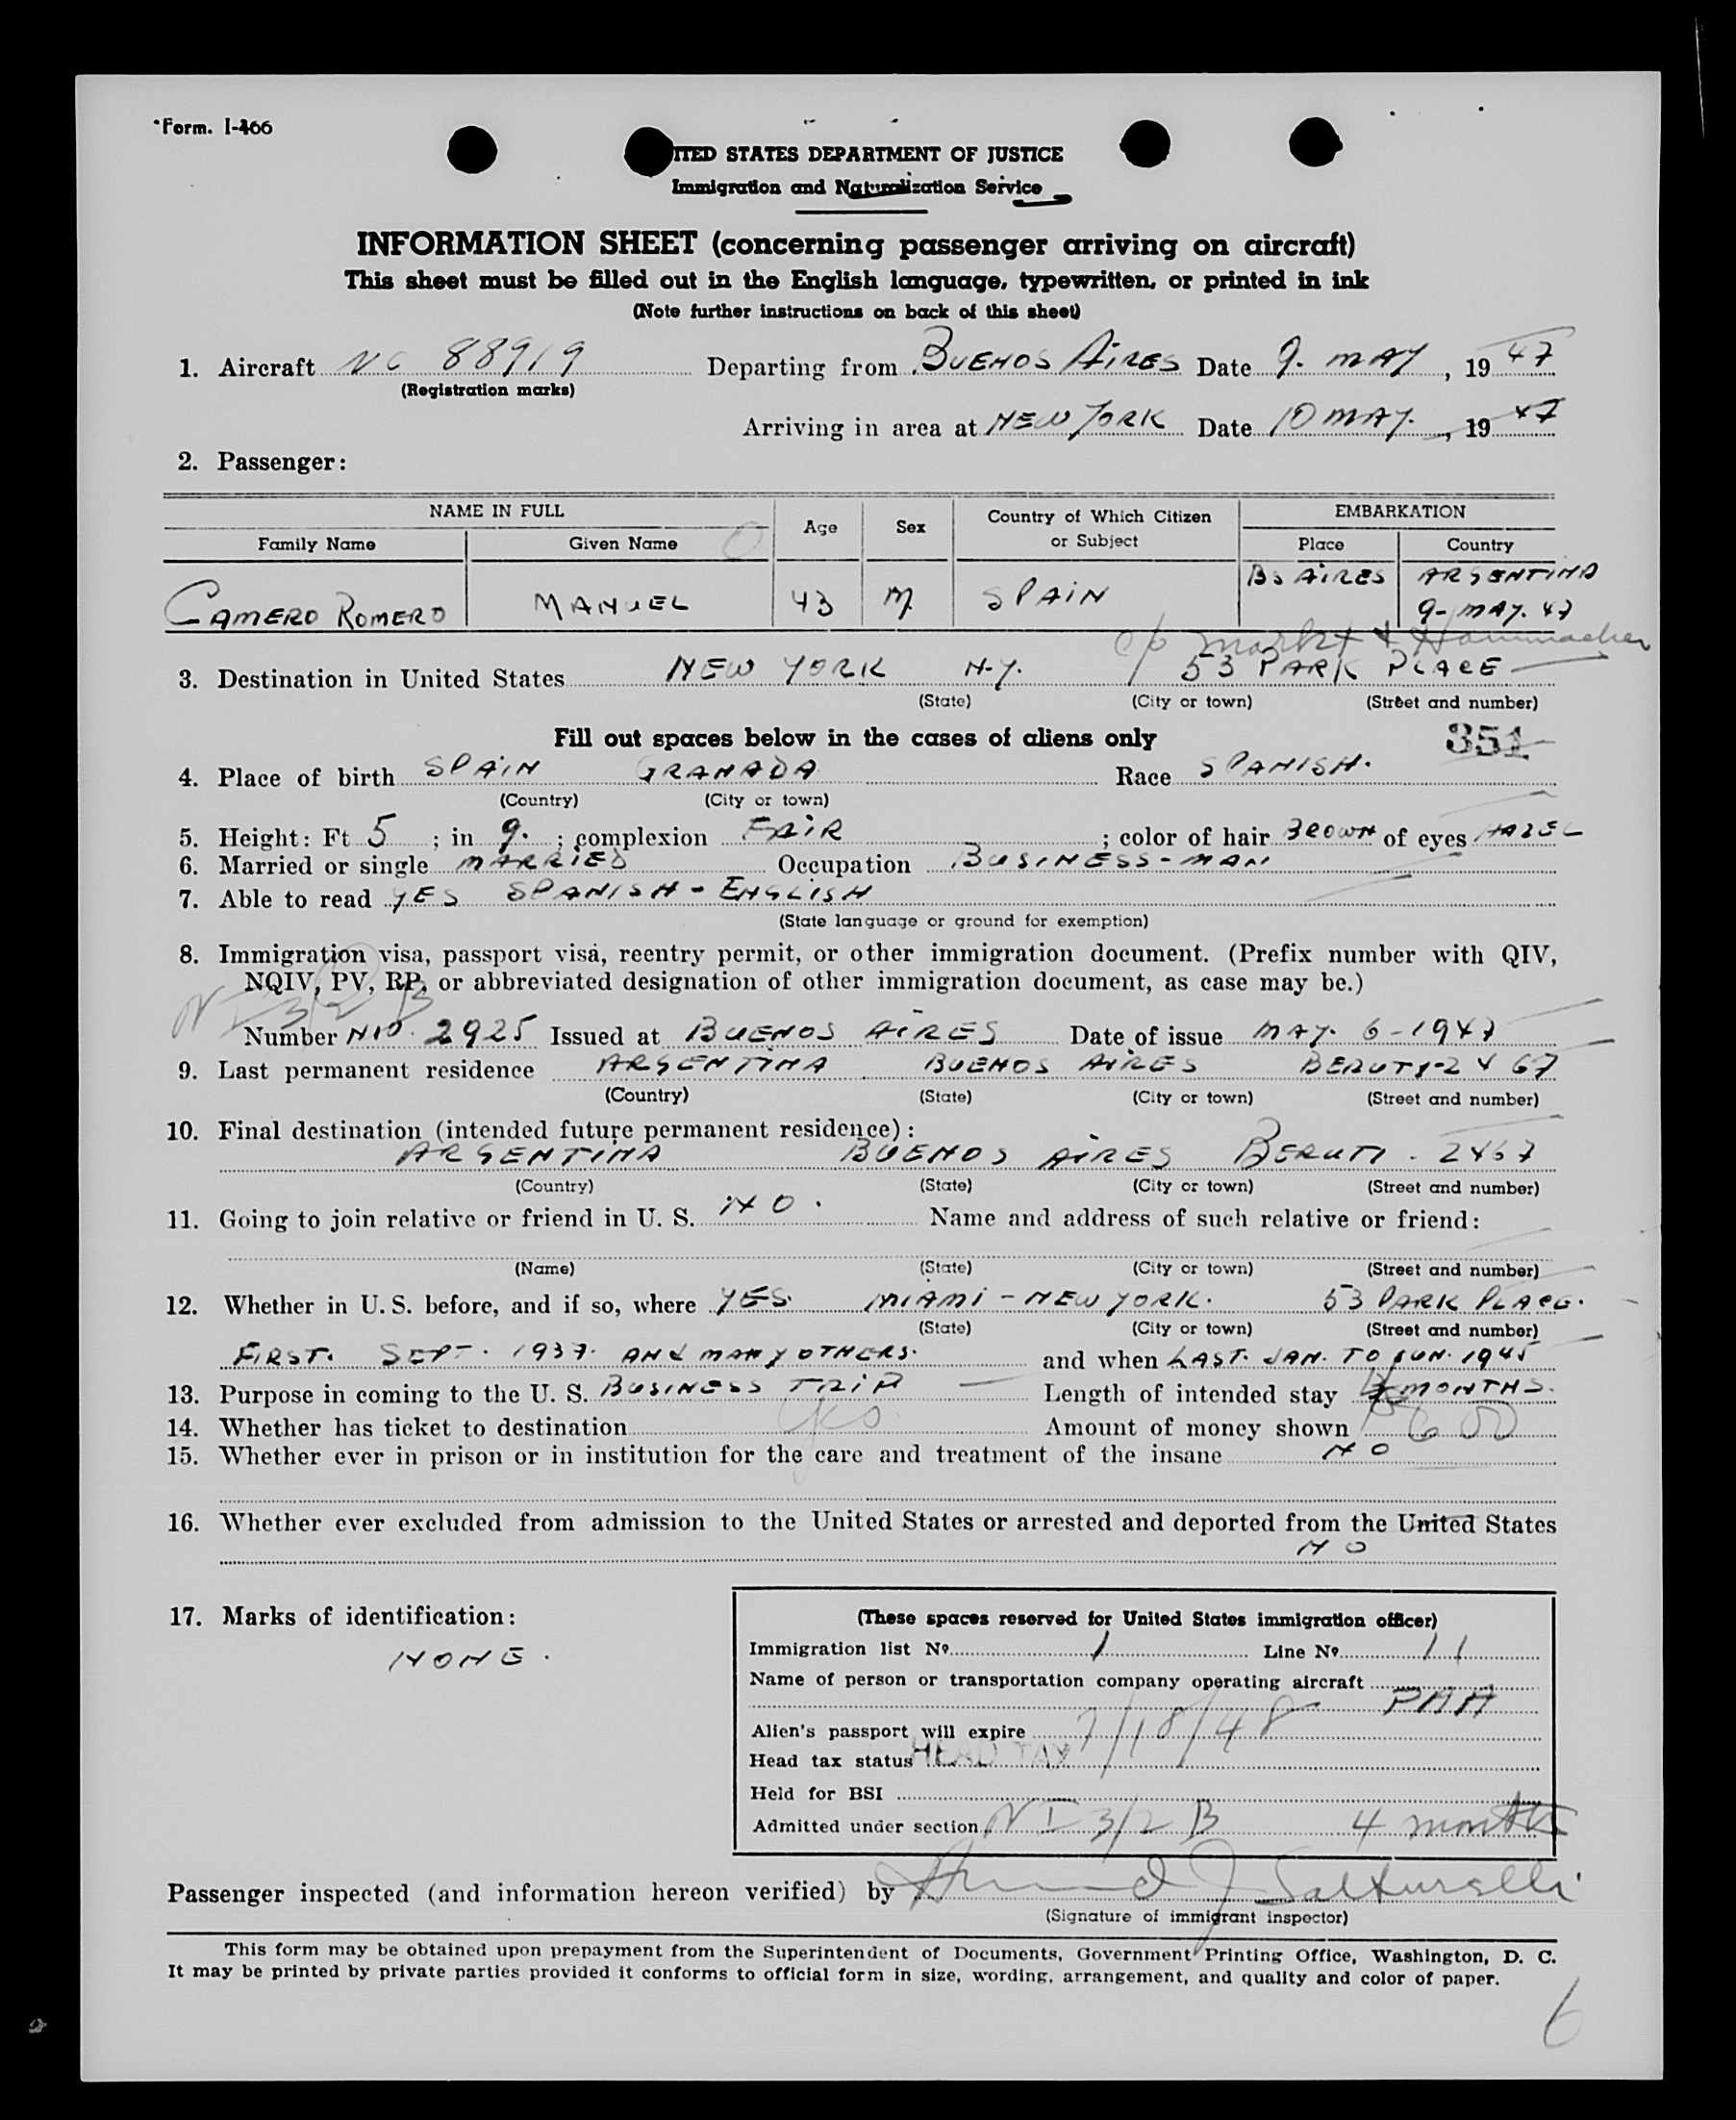 Form. I-466
ITED STATES DEPARTMENT OF JUSTICE
Immigration and Naturalization Service
INFORMATION SHEET (concerning passenger arriving on aircraft)
This sheet must be filled out in the English language, typewritten, or printed in ink
(Note further instructions on back of this sheet)
1. Aircraft NC 88919 Departing from BUENOS AIRES Date 9. MAY, 19 47
(Registration marks)
Arriving in area at NEW YORK Date 10 MAY., 19 47
2. Passenger:
NAME IN FULL Age Sex Country of Which Citizen or Subject EMBARKATION
Family Name Given Name Place Country
CAMERO ROMERO MANUEL 43 M. SPAIN BS AIRES ARGENTINA
9-MAY. 47
c/o Markt & Hammacher
3. Destination in United States NEW YORK N.Y. 53 PARK PLACE
(State) (City or town) (Street and number)
Fill out spaces below in the cases of aliens only 351
4. Place of birth SPAIN GRANADA Race SPANISH.
(Country) (City or town)
5. Height: Ft 5 ; in 9. ; complexion FAIR ; color of hair BROWN of eyes HAZEL
6. Married or single MARRIED Occupation BUSINESS-MAN
7. Able to read YES SPANISH - ENGLISH
(State language or ground for exemption)
8. Immigration visa, passport visa, reentry permit, or other immigration document. (Prefix number with QIV,
NQIV, PV, RP, or abbreviated designation of other immigration document, as case may be.)
NI 3/2 B
Number 2925 Issued at BUENOS AIRES Date of issue MAY. 6-1947
9. Last permanent residence ARGENTINA BUENOS AIRES BERUTI-2467
(Country) (State) (City or town) (Street and number)
10. Final destination (intended future permanent residence):
ARGENTINA BUENOS AIRES BERUTI. 2467
(Country) (State) (City or town) (Street and number)
11. Going to join relative or friend in U. S. NO. Name and address of such relative or friend:
(Name) (State) (City or town) (Street and number)
12. Whether in U. S. before, and if so, where YES. MIAMI - NEW YORK. 53 PARK PLACE.
(State) (City or town) (Street and number)
FIRST. SEPT. 1937. AND MANY OTHERS. and when LAST. JAN. TO JUN. 1945
13. Purpose in coming to the U. S. BUSINESS TRIP Length of intended stay MONTHS.
14. Whether has ticket to destination Yes Amount of money shown 600
15. Whether ever in prison or in institution for the care and treatment of the insane NO
16. Whether ever excluded from admission to the United States or arrested and deported from the United States
NO
17. Marks of identification:
NONE.
(These spaces reserved for United States immigration officer)
Immigration list No. 1 Line No. 11
Name of person or transportation company operating aircraft
PAA
Alien's passport will expire 7/18/48
Head tax status HEAD TAX
Held for BSI
Admitted under section NI 3/2 B 4 months
Passenger inspected (and information hereon verified) by
(Signature of immigrant inspector)
This form may be obtained upon prepayment from the Superintendent of Documents, Government Printing Office, Washington, D. C.
It may be printed by private parties provided it conforms to official form in size, wording, arrangement, and quality and color of paper.
6